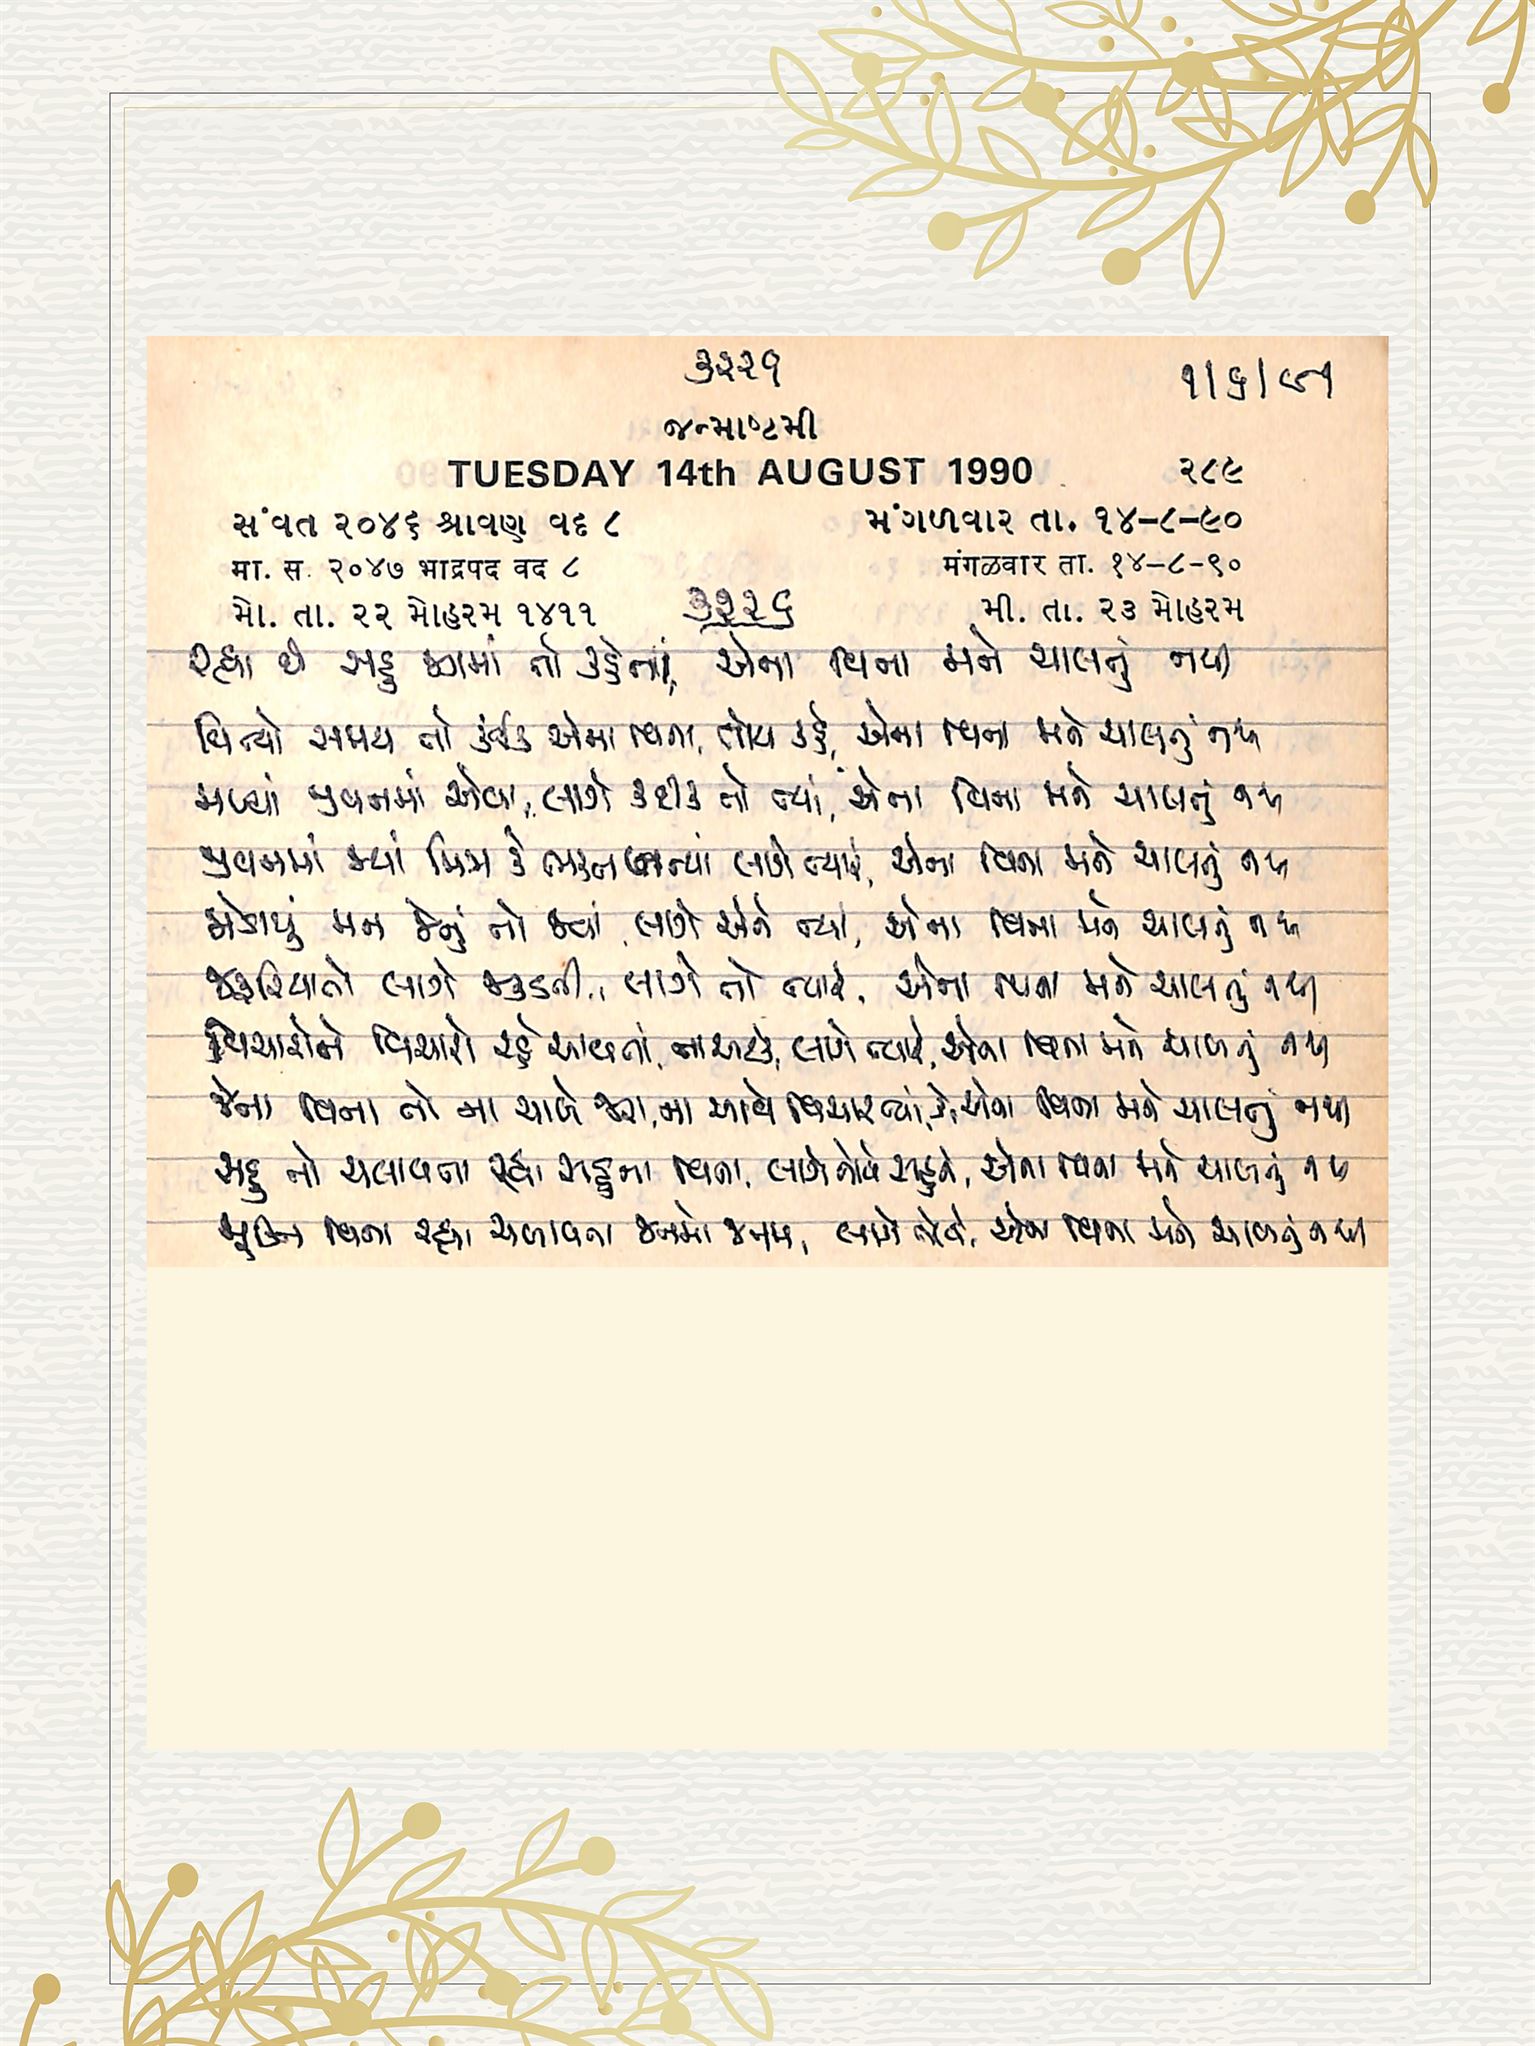 ૩૨૨૧
૧/૬/૯૧
જન્માષ્ટમી
TUESDAY 14th AUGUST 1990 ૨૮૯
સંવત ૨૦૪૬ શ્રાવણ વદ ૮ મંગળવાર તા. ૧૪-૮-૯૦
मा. स. २०४७ भाद्रपद वद ८ मंगळवार ता. १४-८-९०
મો. તા. ૨૨ મોહરમ ૧૪૧૧ ૩૨૨૬ મી. તા. ૨૩ મોહરમ
રહ્યા છે સહુ જગમાં તો કહેતાં, એના વિના મને ચાલતું નથી
વિત્યો સમય તો કંઈક એના વિના, તોય કહે, એના વિના મને ચાલતું નથી
મળ્યાં જીવનમાં એવા, લાગે કદીક તો ત્યાં, એના વિના મને ચાલતું નથી
જીવનમાં જ્યાં મિત્ર કે ભક્ત બન્યાં લાગે ત્યારે, એના વિના મને ચાલતું નથી
જોડાયું મન જેનું તો જ્યાં, લાગે એને ત્યાં, એના વિના મને ચાલતું નથી
જરૂરિયાતો લાગે જકડતી, લાગે તો ત્યારે, એના વિના મને ચાલતું નથી
વિચારોને વિચારો રહે આવતાં, ના અટકે, લાગે ત્યારે, એના વિના મને ચાલતું નથી
જેના વિના તો ના ચાલે જરા, ના આવે વિચાર ત્યાં, કે એના વિના મને ચાલતું નથી
સહુ તો ચલાવતા રહ્યા સહુના વિના, લાગે તોયે સહુને, એના વિના મને ચાલતું નથી
મુક્તિ વિના રહ્યા ચલાવતા જનમો જનમ, લાગે તોયે, એના વિના મને ચાલતું નથી